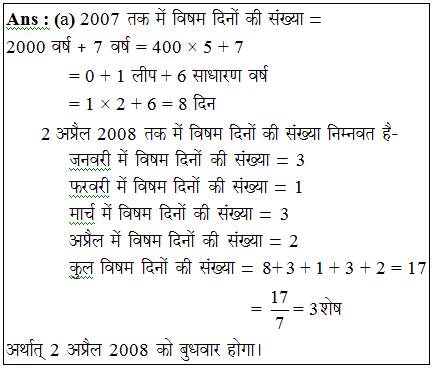 Ans : (a) 2007 तक में विषम दिनों की संख्या =
2000 वर्ष + 7 वर्ष = 400 × 5 + 7
= 0 + 1 लीप + 6 साधारण वर्ष
= 1 × 2 + 6 = 8 दिन
2 अप्रैल 2008 तक में विषम दिनों की संख्या निम्नवत है-
जनवरी में विषम दिनों की संख्या = 3
फरवरी में विषम दिनों की संख्या = 1
मार्च में विषम दिनों की संख्या = 3
अप्रैल में विषम दिनों की संख्या = 2
कुल विषम दिनों की संख्या = 8+ 3 + 1 + 3 + 2 = 17
= 17/7 = 3 शेष
अर्थात् 2 अप्रैल 2008 को बुधवार होगा।